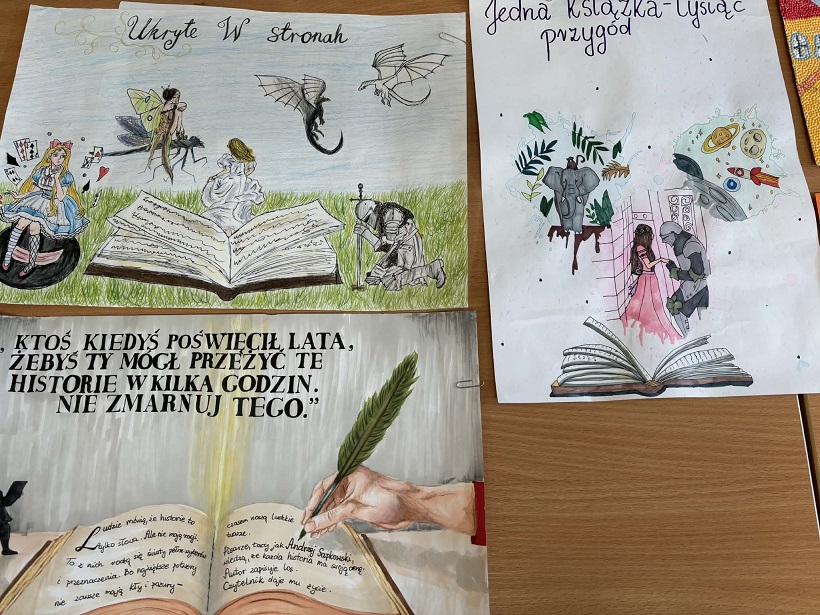 Ukryte W stronah
Jedna książka - tysiąc
przygód
, KTOŚ KIEDYŚ POŚWIĘCIŁ LATA,
ŻEBYŚ TY MÓGŁ PRZEŻYĆ TE
HISTORIE W KILKA GODZIN.
NIE ZMARNUJ TEGO.”
Ludzie mówią, że historie to
tylko słowa. Ale nie mają racji.
To z nich rodzą się światy pełne
i przeznaczenia. Bo najgorsze potwory
nie zawsze mają kły i pazury -
czasem noszą ludzkie
twarze.
Pisarze, tacy jak Andrzej Sapkowski,
wiedzą, że każda historia ma swoją cenę.
Autor zapisuje los.
Czytelnik daje mu życie.